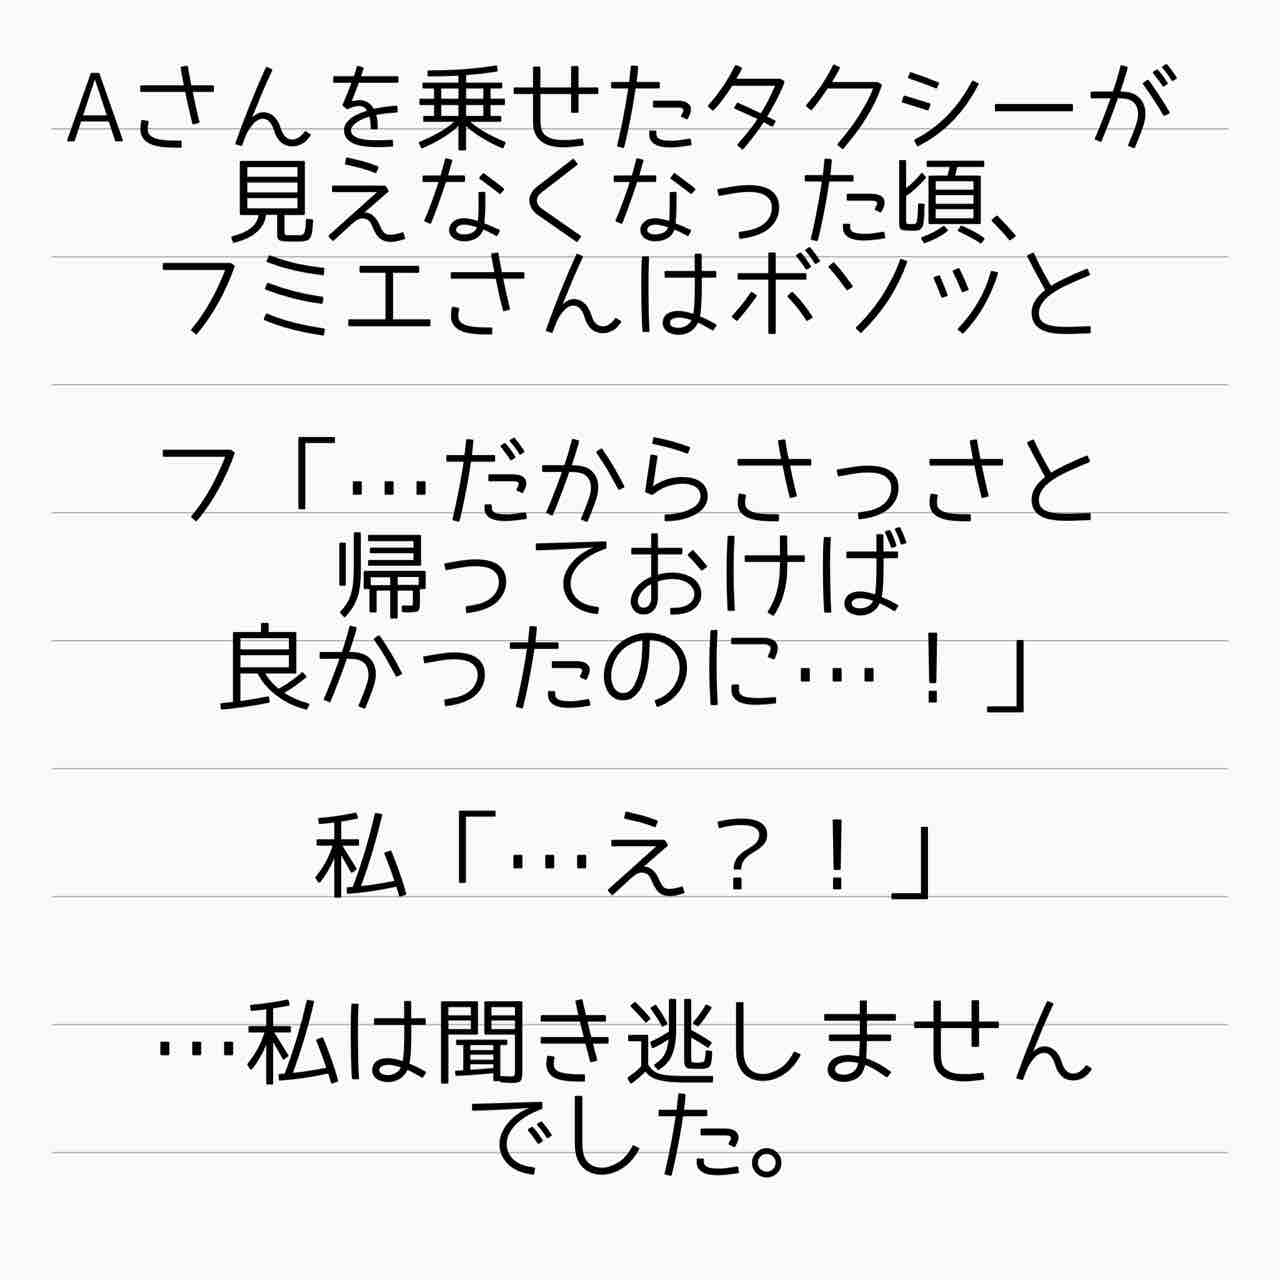 Aさんを乗せたタクシーが
見えなくなった頃、
フミエさんはボソッと
フ「…だからさっさと
帰っておけば
良かったのに…！」
私「…え？！」
…私は聞き逃しません
でした。